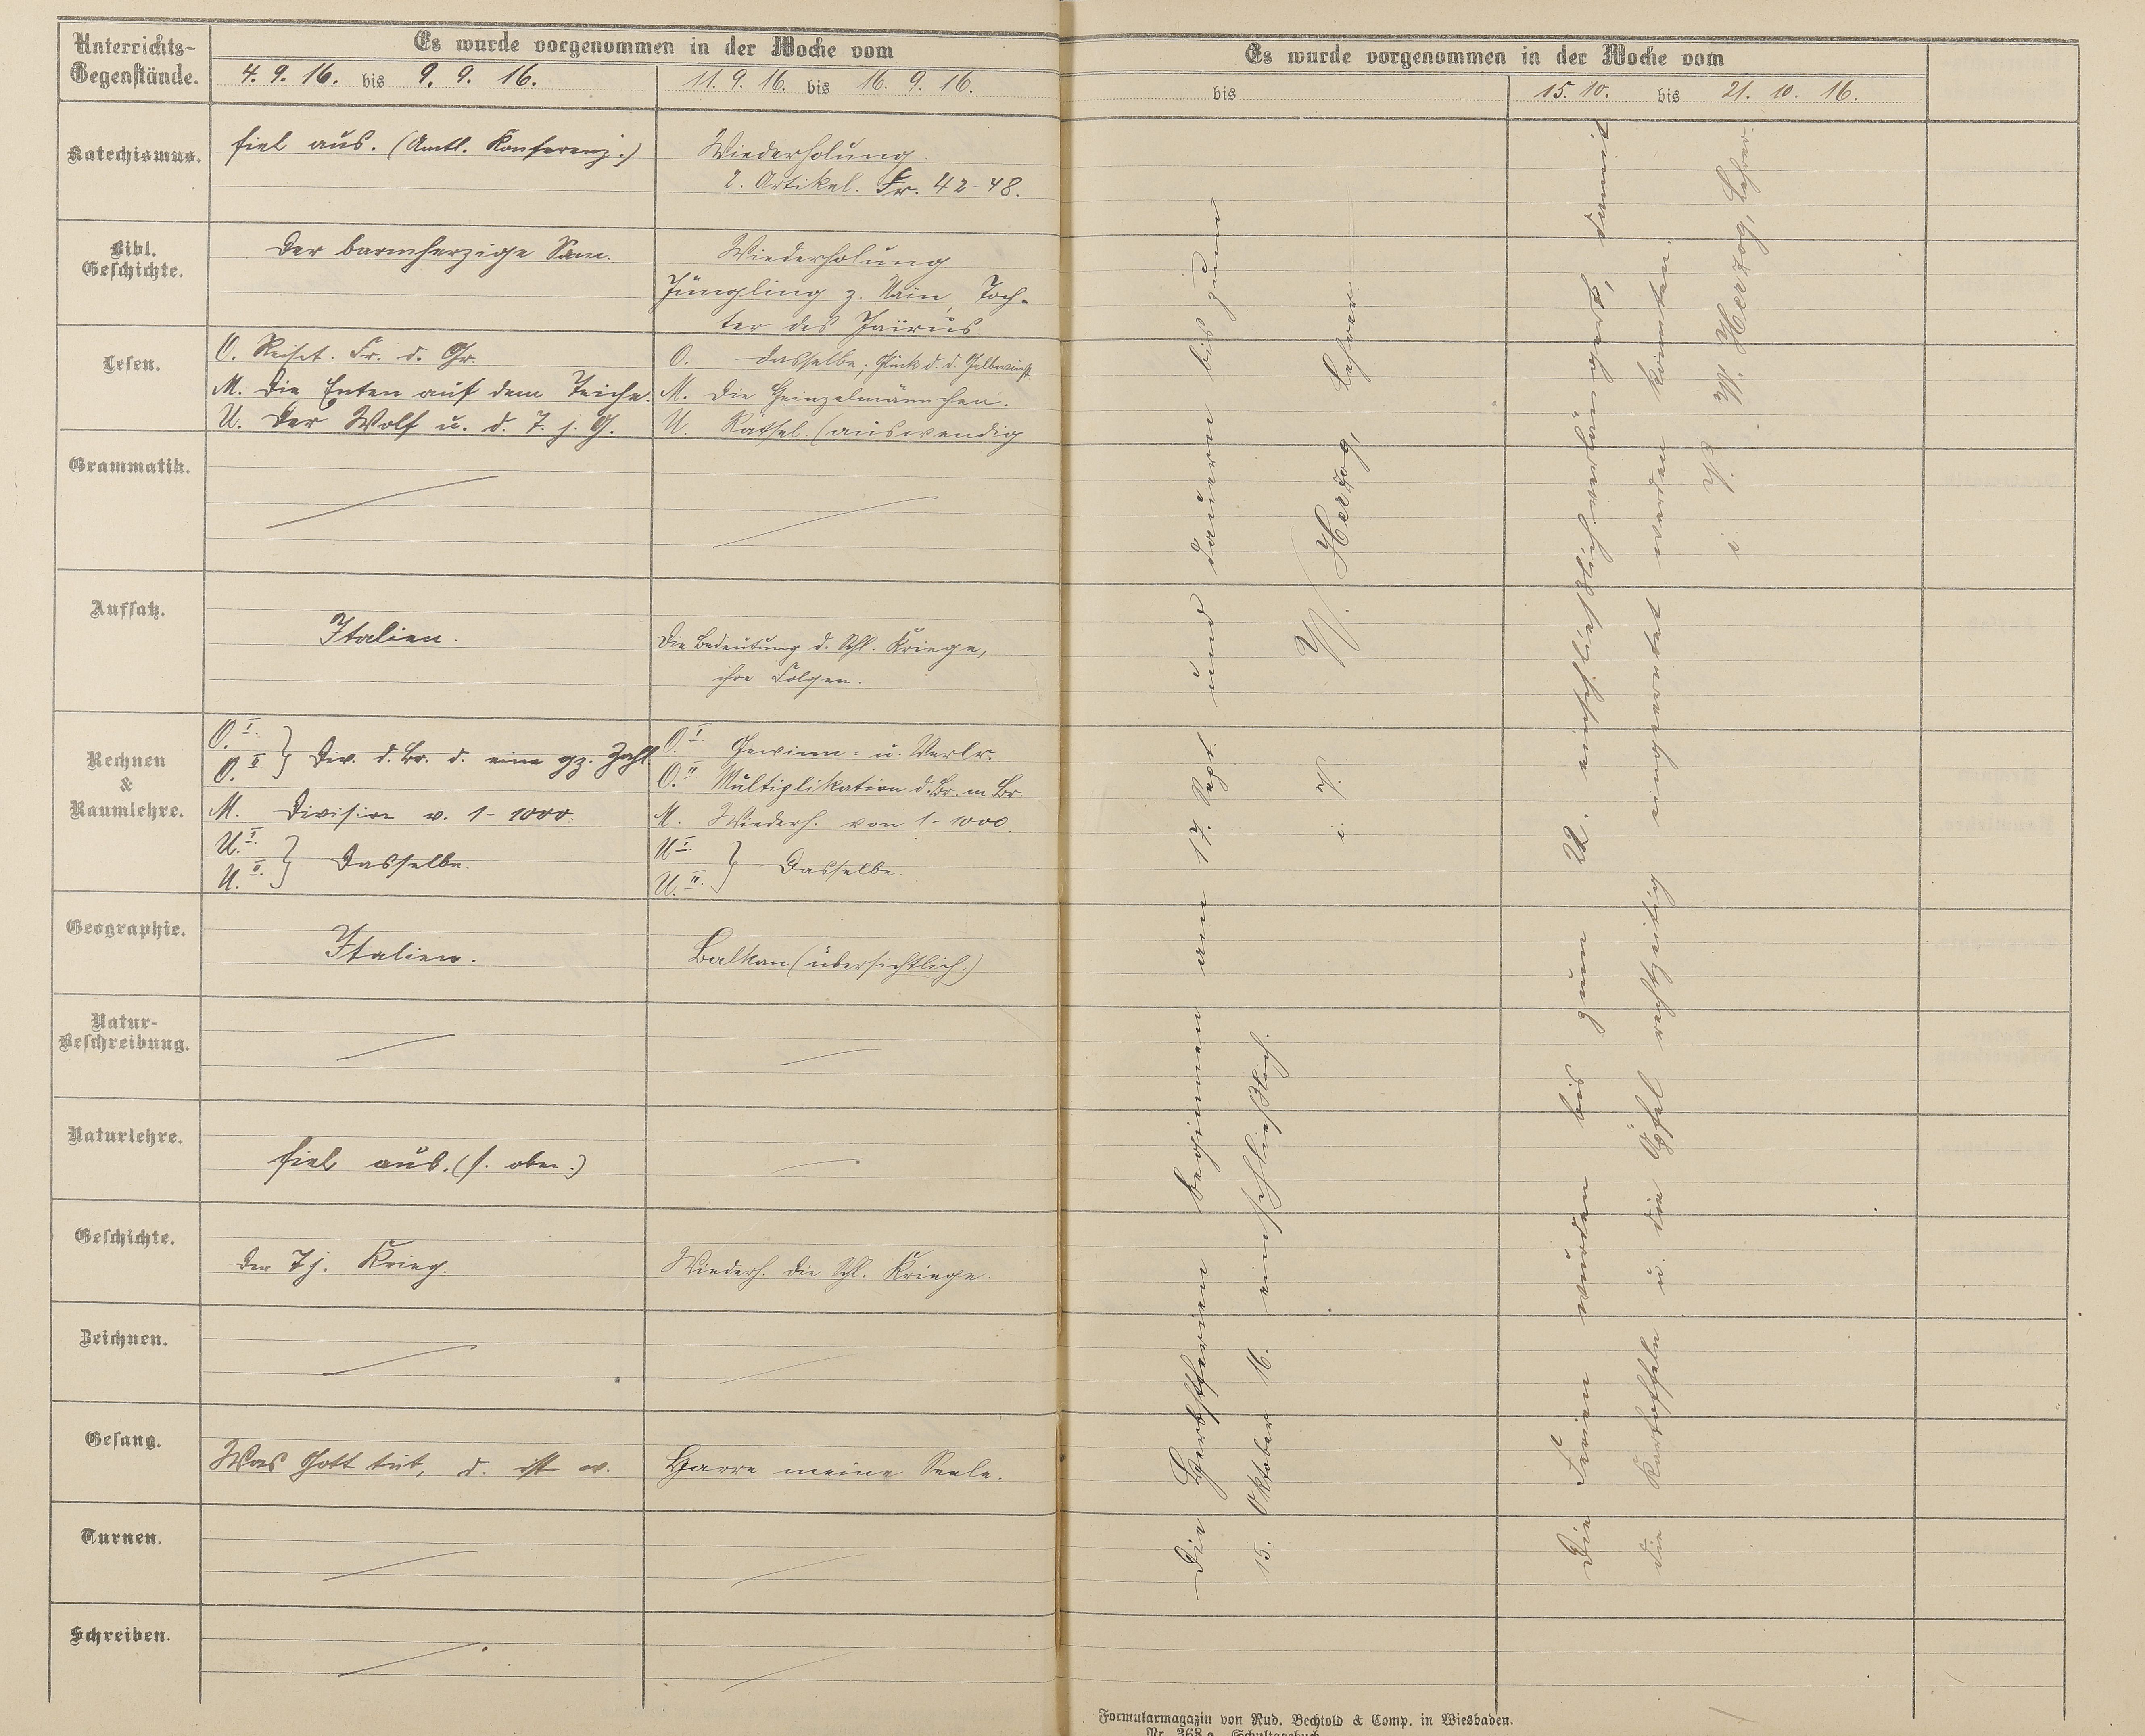 Unterrichts-
Gegenstände.
Es wurde vorgenommen in der Woche vom
4. 9. 16. bis 9. 9. 16.
11. 9. 16. bis 16. 9. 16.
Katechismus.
fiel aus. (Amtl. Konferenz.)
Wiederholung.
2. Artikel. Fr. 42-48.
Bibl.
Geschichte.
Der barmherzige Sam.
Wiederholung
Jüngling z. Nain, Toch-
ter des Jairus.
Lesen.
O. Reiset. Fr. d. Gr.
M. Die Enten auf dem Teiche.
U. Der Wolf u. d. 7. j. G.
O. dasselbe; Glück d. d.
M. Die Heinzelmännchen.
U. Rätsel (auswendig
Grammatik.
Aufsatz.
Italien.
Die Bedeutung d. Schl. Kriege,
ihre Folgen.
Rechnen
&
Raumlehre.
O. I.
O. II } Div. d. Br. d. eine gz. Zahl
M. Division v. 1-1000.
U. I.
U. II. } Dasselbe.
O. I. Gewinn- u. Verlr.
O. II Multiplikation d. Br. m Br.
M. Wiederh. von 1-1000.
U I.
U. II. } Dasselbe.
Geographie.
Italien.
Balkan (übersichtlich.)
Natur-
Beschreibung.
Naturlehre.
fiel aus. (s. oben.)
Geschichte.
Der 7 j. Krieg.
Wiederh. die Schl. Kriege.
Zeichnen.
Gesang.
Was Gott tut, d. ist w.
Harre meine Seele.
Turnen.
Schreiben.
Es wurde vorgenommen in der Woche vom
bis
15. 10. bis 21. 10. 16.
Die Herbstferien beginnen am 17. Sept. und dauern bis zum
15. Oktober 16. einschließlich.
i. V. W. Herzog, Lehrer.
Die Ferien wurden bis zum 22. einschließlich verlängert, damit
die Kartoffeln u. die Äpfel rechtzeitig eingeerntet werden konnten.
i. V. W. Herzog, Lehrer.
Formularmagazin von Rud. Bechtold & Comp. in Wiesbaden.
Nr. 368a. Schultagebuch